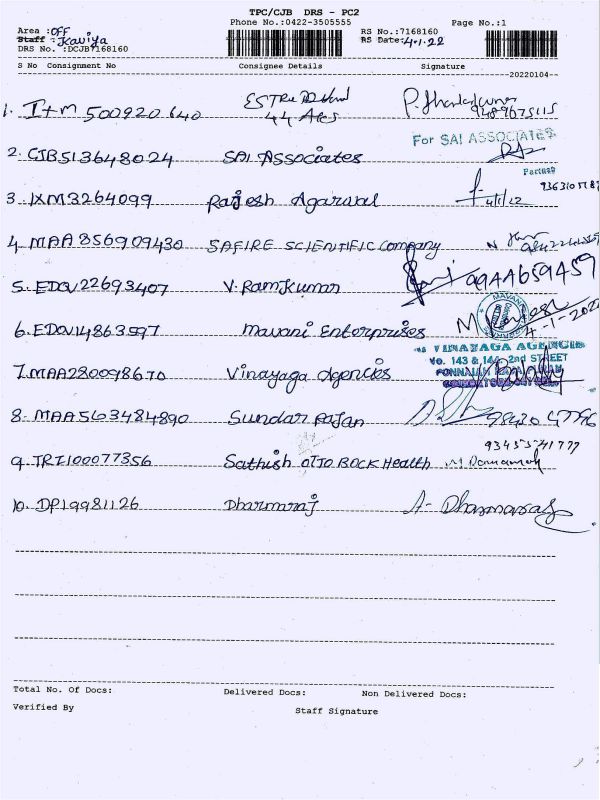 TPC/CJB DRS - PC2
Phone No.:0422-3505555 Page No.:1
Area : OFF RS No.:7168160
Staff : Kaviya RS Date: 4.1.22
DRS No. :DCJB7168160
S No Consignment No Consignee Details Signature
--20220104--
1. I+M 500920640 44
For SAI ASSOCIATES
2. CJB513648024 SAI Associates
Partner
3. IXM3264099 Rajesh Agarwal 4/1/22
4. MAA 856909430 SAFIRE SCIENTIFIC Company
5. EDQV22693407 V. Ramkumar 99AA659A59
6. EDQV14863597 Mavani Enterprises 4-1-2022
VINAYAGA AGENCIES
No. 143 & 144, 2nd STREET
7. MAA280098670 Vinayaga Agencies
8. MAA563484890 Sundar Rajan
9345541777
9. TRZ100077356 Sathish OTTO BOCK Health
10. DP19981126 Dharmaraj A- Dharmaraj
Total No. Of Docs: Delivered Docs: Non Delivered Docs:
Verified By Staff Signature